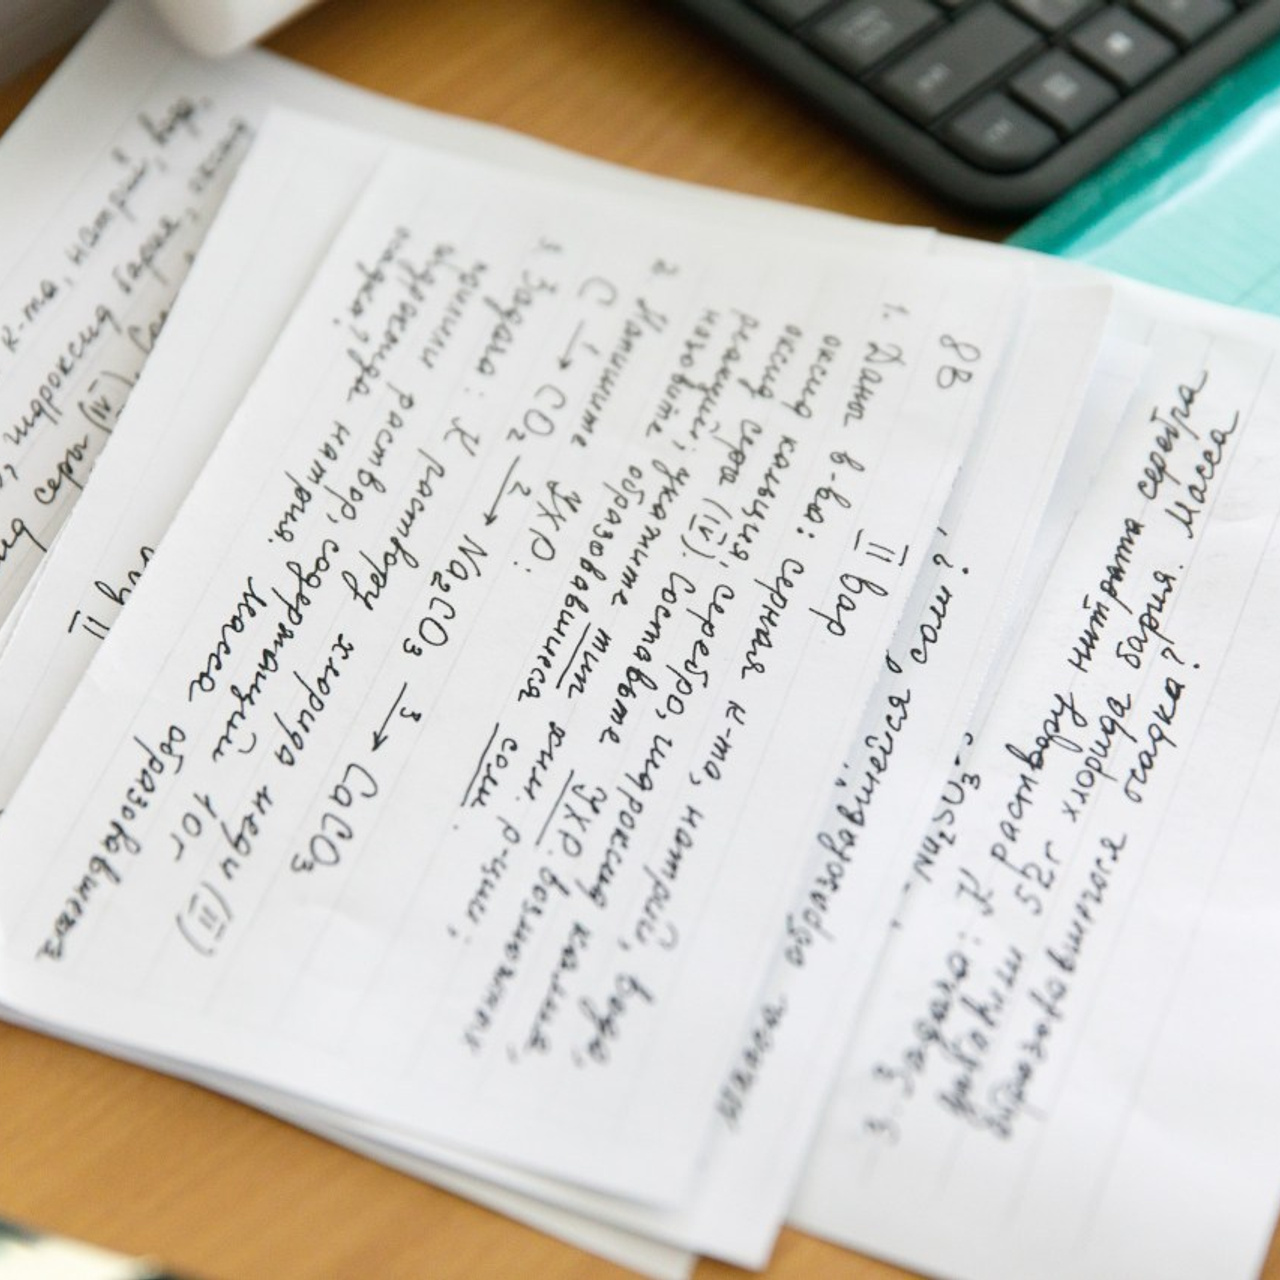 8В
II вар
1. Дана в-ва: серная к-та, натрий, вода,
оксид кальция, серебро, гидроксид калия,
оксид серы (IV). Составьте УХР. возможных
реакций; укажите тип хим. р-ции;
назовите образовавшиеся соли.
2. Напишите УХР:
C 1→ CO2 2→ Na2CO3 3→ CaCO3
3. Задача: К раствору хлорида меди (II)
прилили раствор, содержащий 10г
гидроксида натрия. Масса образовавшегося
осадка?
к-та, натрий, вода,
гидроксид бария,
серы (IV).
II
масса образовавшейся соли?
Na2SO3
3. Задача: К раствору нитрата серебра
добавили 52г хлорида бария. Масса
образовавшегося осадка?